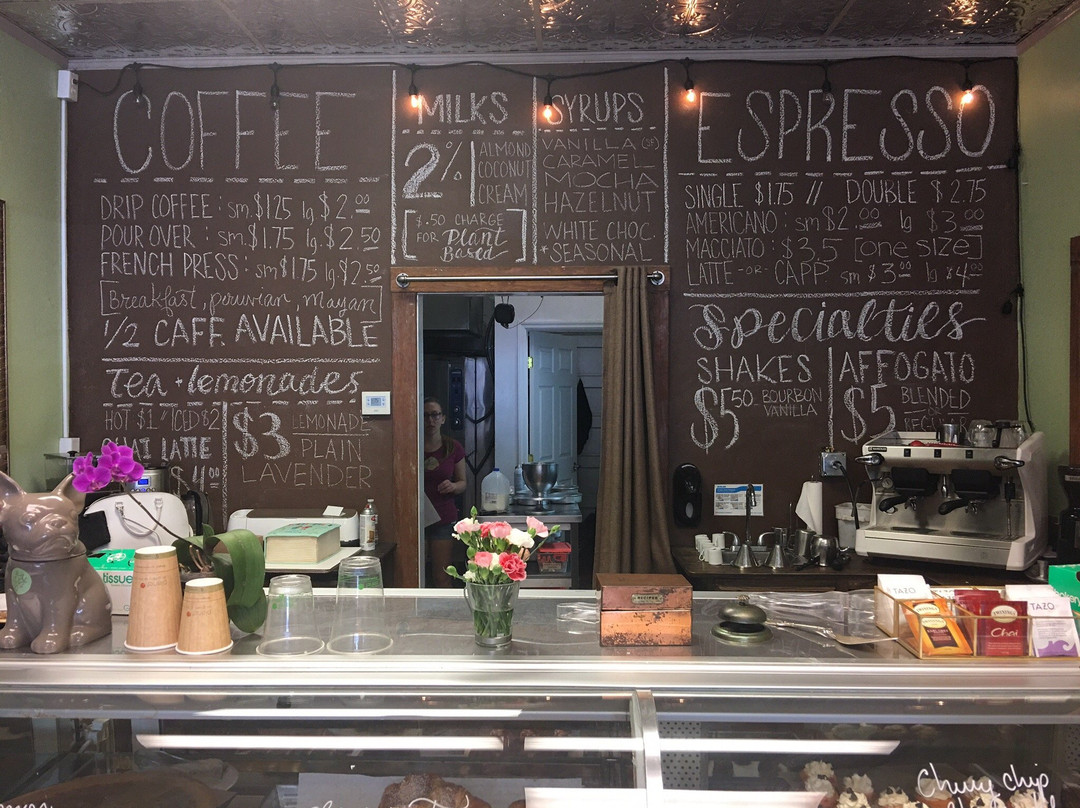 COFFEE
DRIP COFFEE: sm. $1.25 lg $2.00
POUR OVER: sm. $1.75 lg. $2.50
FRENCH PRESS: sm $1.75 lg. $2.50
[Breakfast, peruvian, mayan]
1/2 CAFF. AVAILABLE
Tea + lemonades
HOT $1 ICED $2
CHAI LATTE
$4.00
$3 LEMONADE
PLAIN
LAVENDER
MILKS
2%
ALMOND
COCONUT
CREAM
[$.50 CHARGE
FOR Plant
Based]
SYRUPS
VANILLA (SF)
CARAMEL
MOCHA
HAZELNUT
WHITE CHOC.
*SEASONAL
ESPRESSO
SINGLE $1.75 // DOUBLE $2.75
AMERICANO: sm $2.00 lg $3.00
MACCIATO: $3.5 [one size]
LATTE -OR- CAPP. sm $3.00 lg $4.00
Specialties
SHAKES
$5.50 - BOURBON
VANILLA
AFFOGATO
$5 BLENDED
OR
tissue
RECIPES
TAZO
Chai
TAZO
Chewy chip